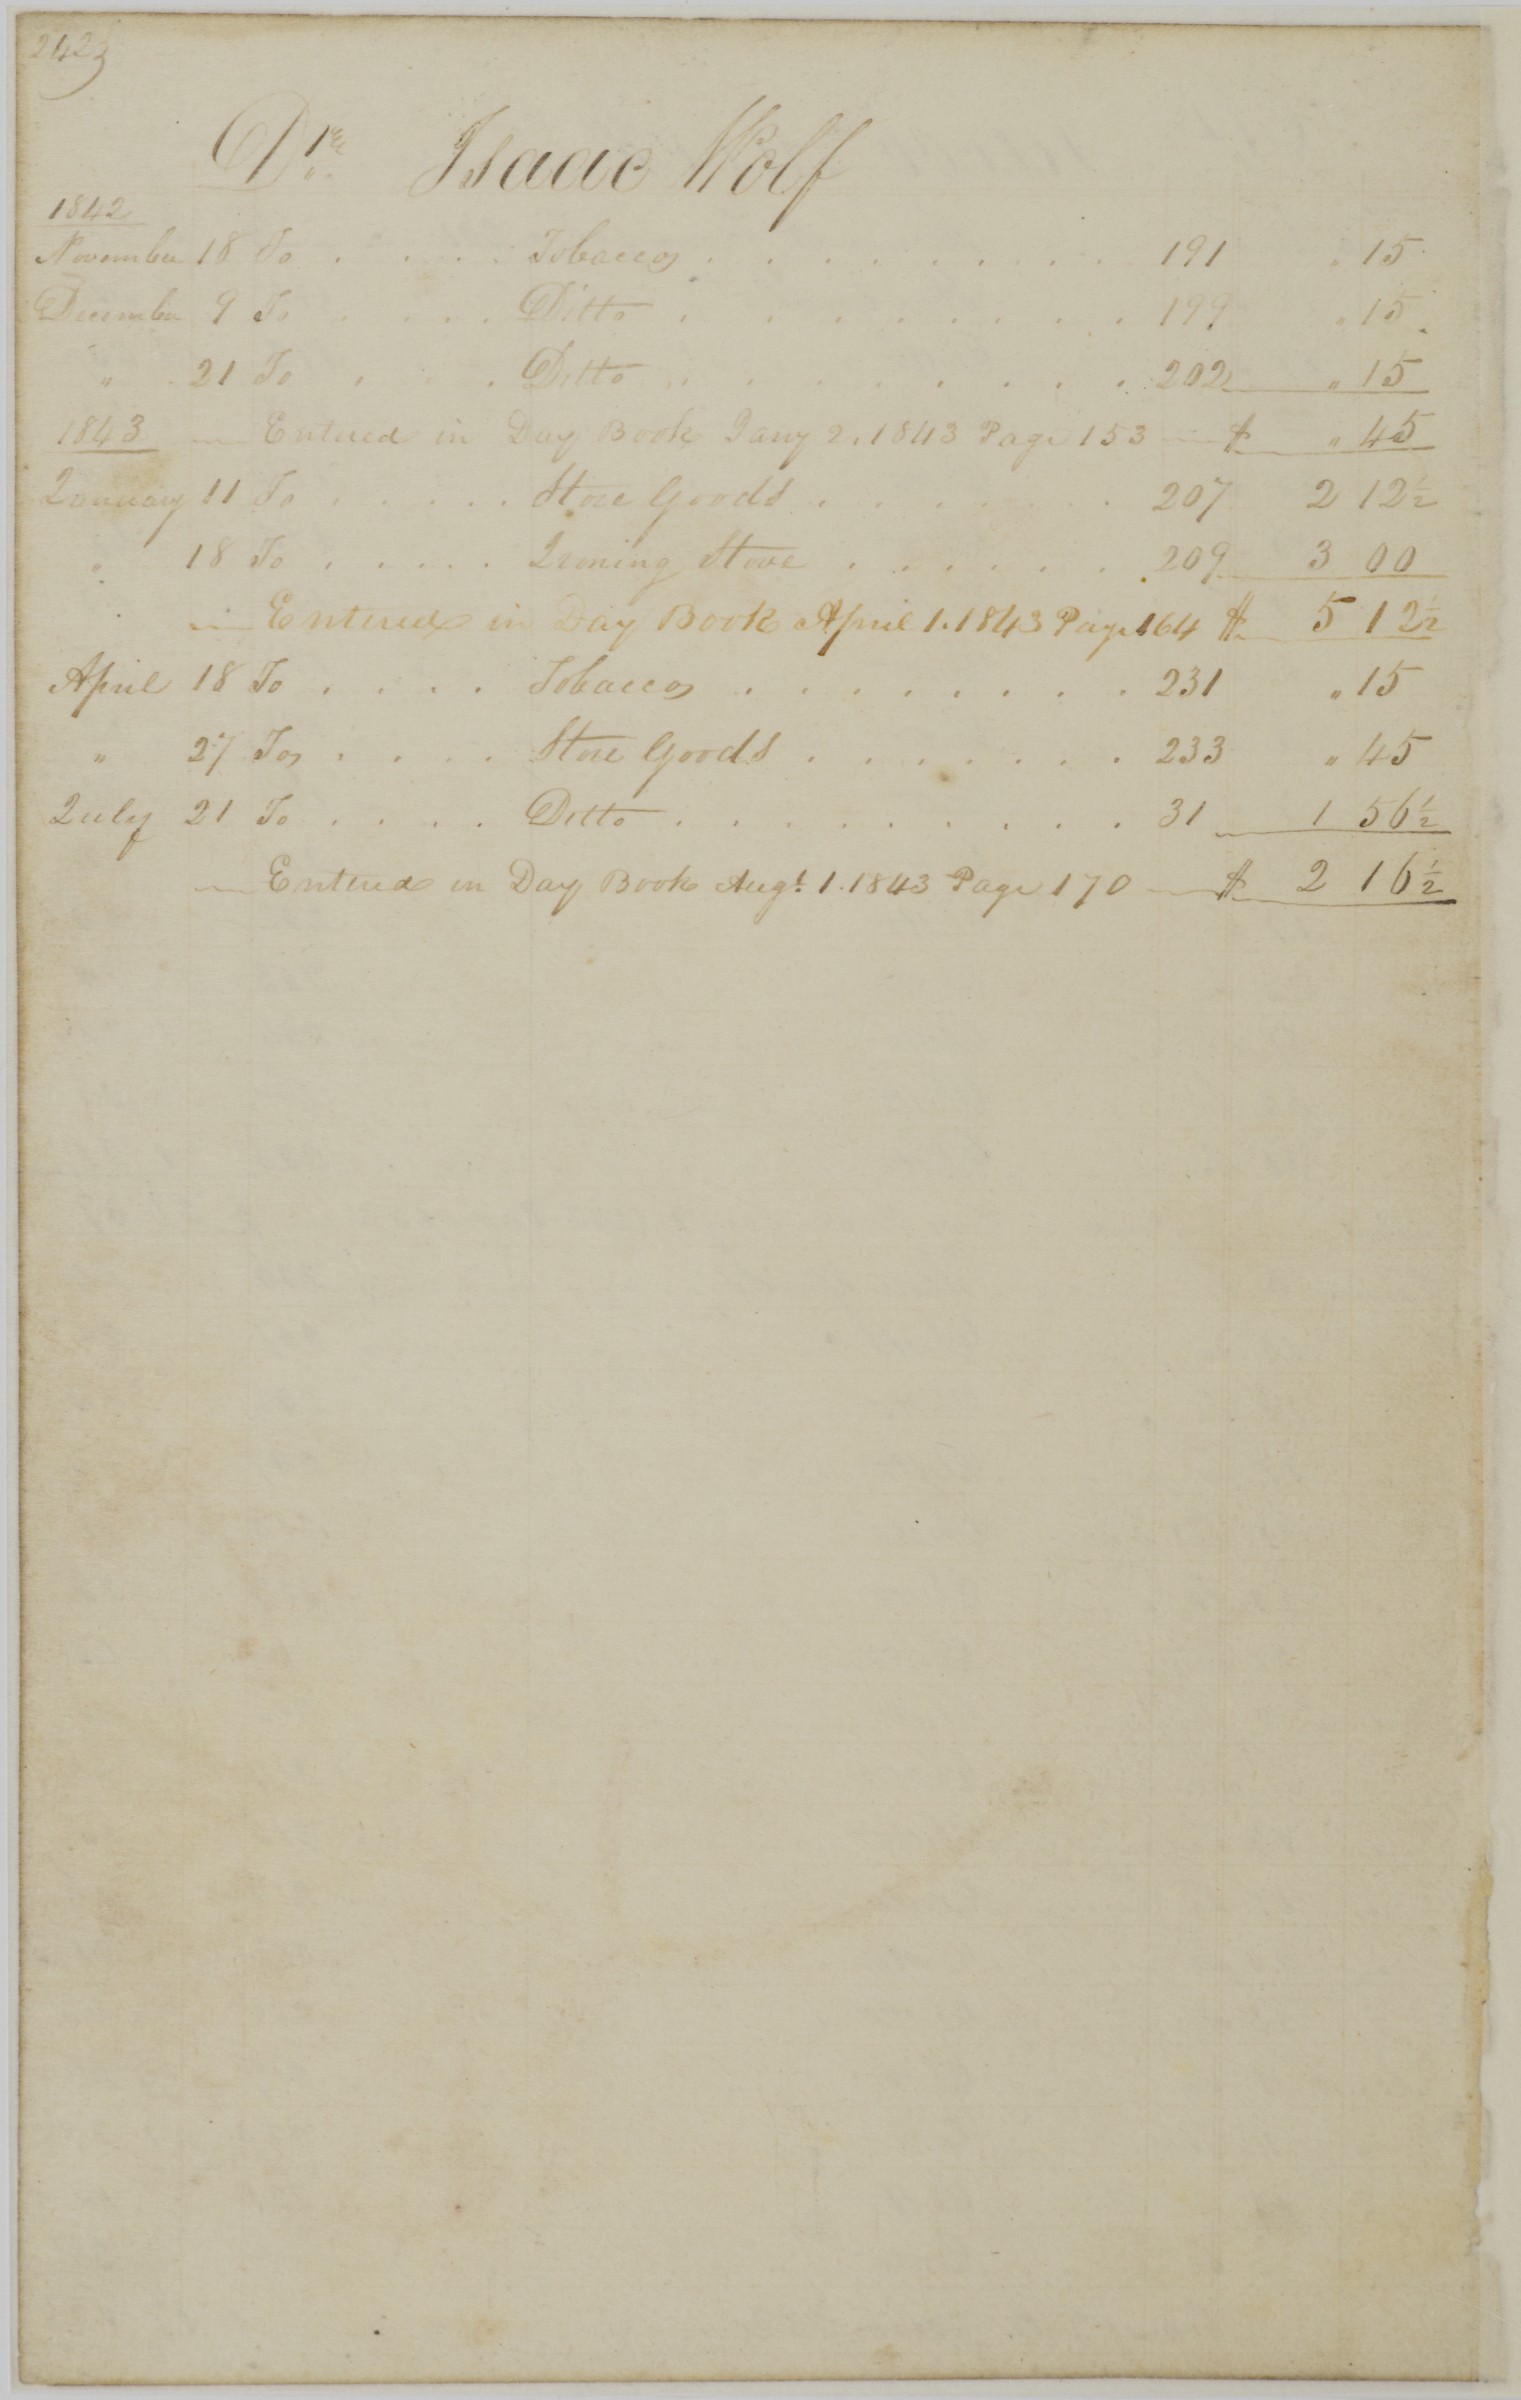 242
Dr. Isaac Wolf
1842
November 18 To . . . . Tobacco . . . . . . . . . 191 " 15
December 9 To . . . . Ditto . . . . . . . . . 199 " 15
" 21 To . . . . Ditto . . . . . . . . . 202 " 15
1843 — Entered in Day Book Jany 2. 1843 Page 153 — $ " 45
January 11 To . . . . . Store Goods . . . . . . . 207 2 12½
" 18 To . . . . . Ironing Stove . . . . . . 209 3 00
— Entered in Day Book April 1. 1843 Page 164 $ 5 12½
April 18 To . . . . Tobacco . . . . . . . . . 231 " 15
" 27 To . . . . Store Goods . . . . . . . 233 " 45
July 21 To . . . . Ditto . . . . . . . . . 31 1 56½
— Entered in Day Book Augt. 1. 1843 Page 170 — $ 2 16½